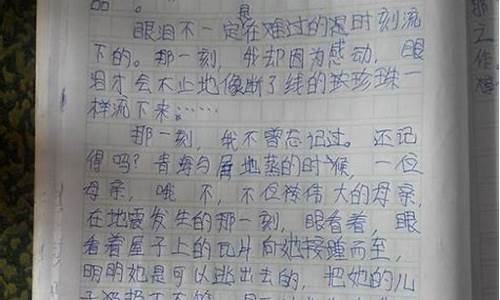 品。
眼泪不一定是在难过的时刻流
下的。那一刻,我却因为感动,眼
泪才会不止地像断了线的珍珠一
样流下来……
那一刻,我不曾忘记过。还记
得吗?青海的时候,一位
母亲,哦不,不伟大的母亲,
在地震发生的那一刻,眼看着,眼
看着屋子上的瓦片向她接踵而至,
明明她是可以逃出去的,把她的儿
作。